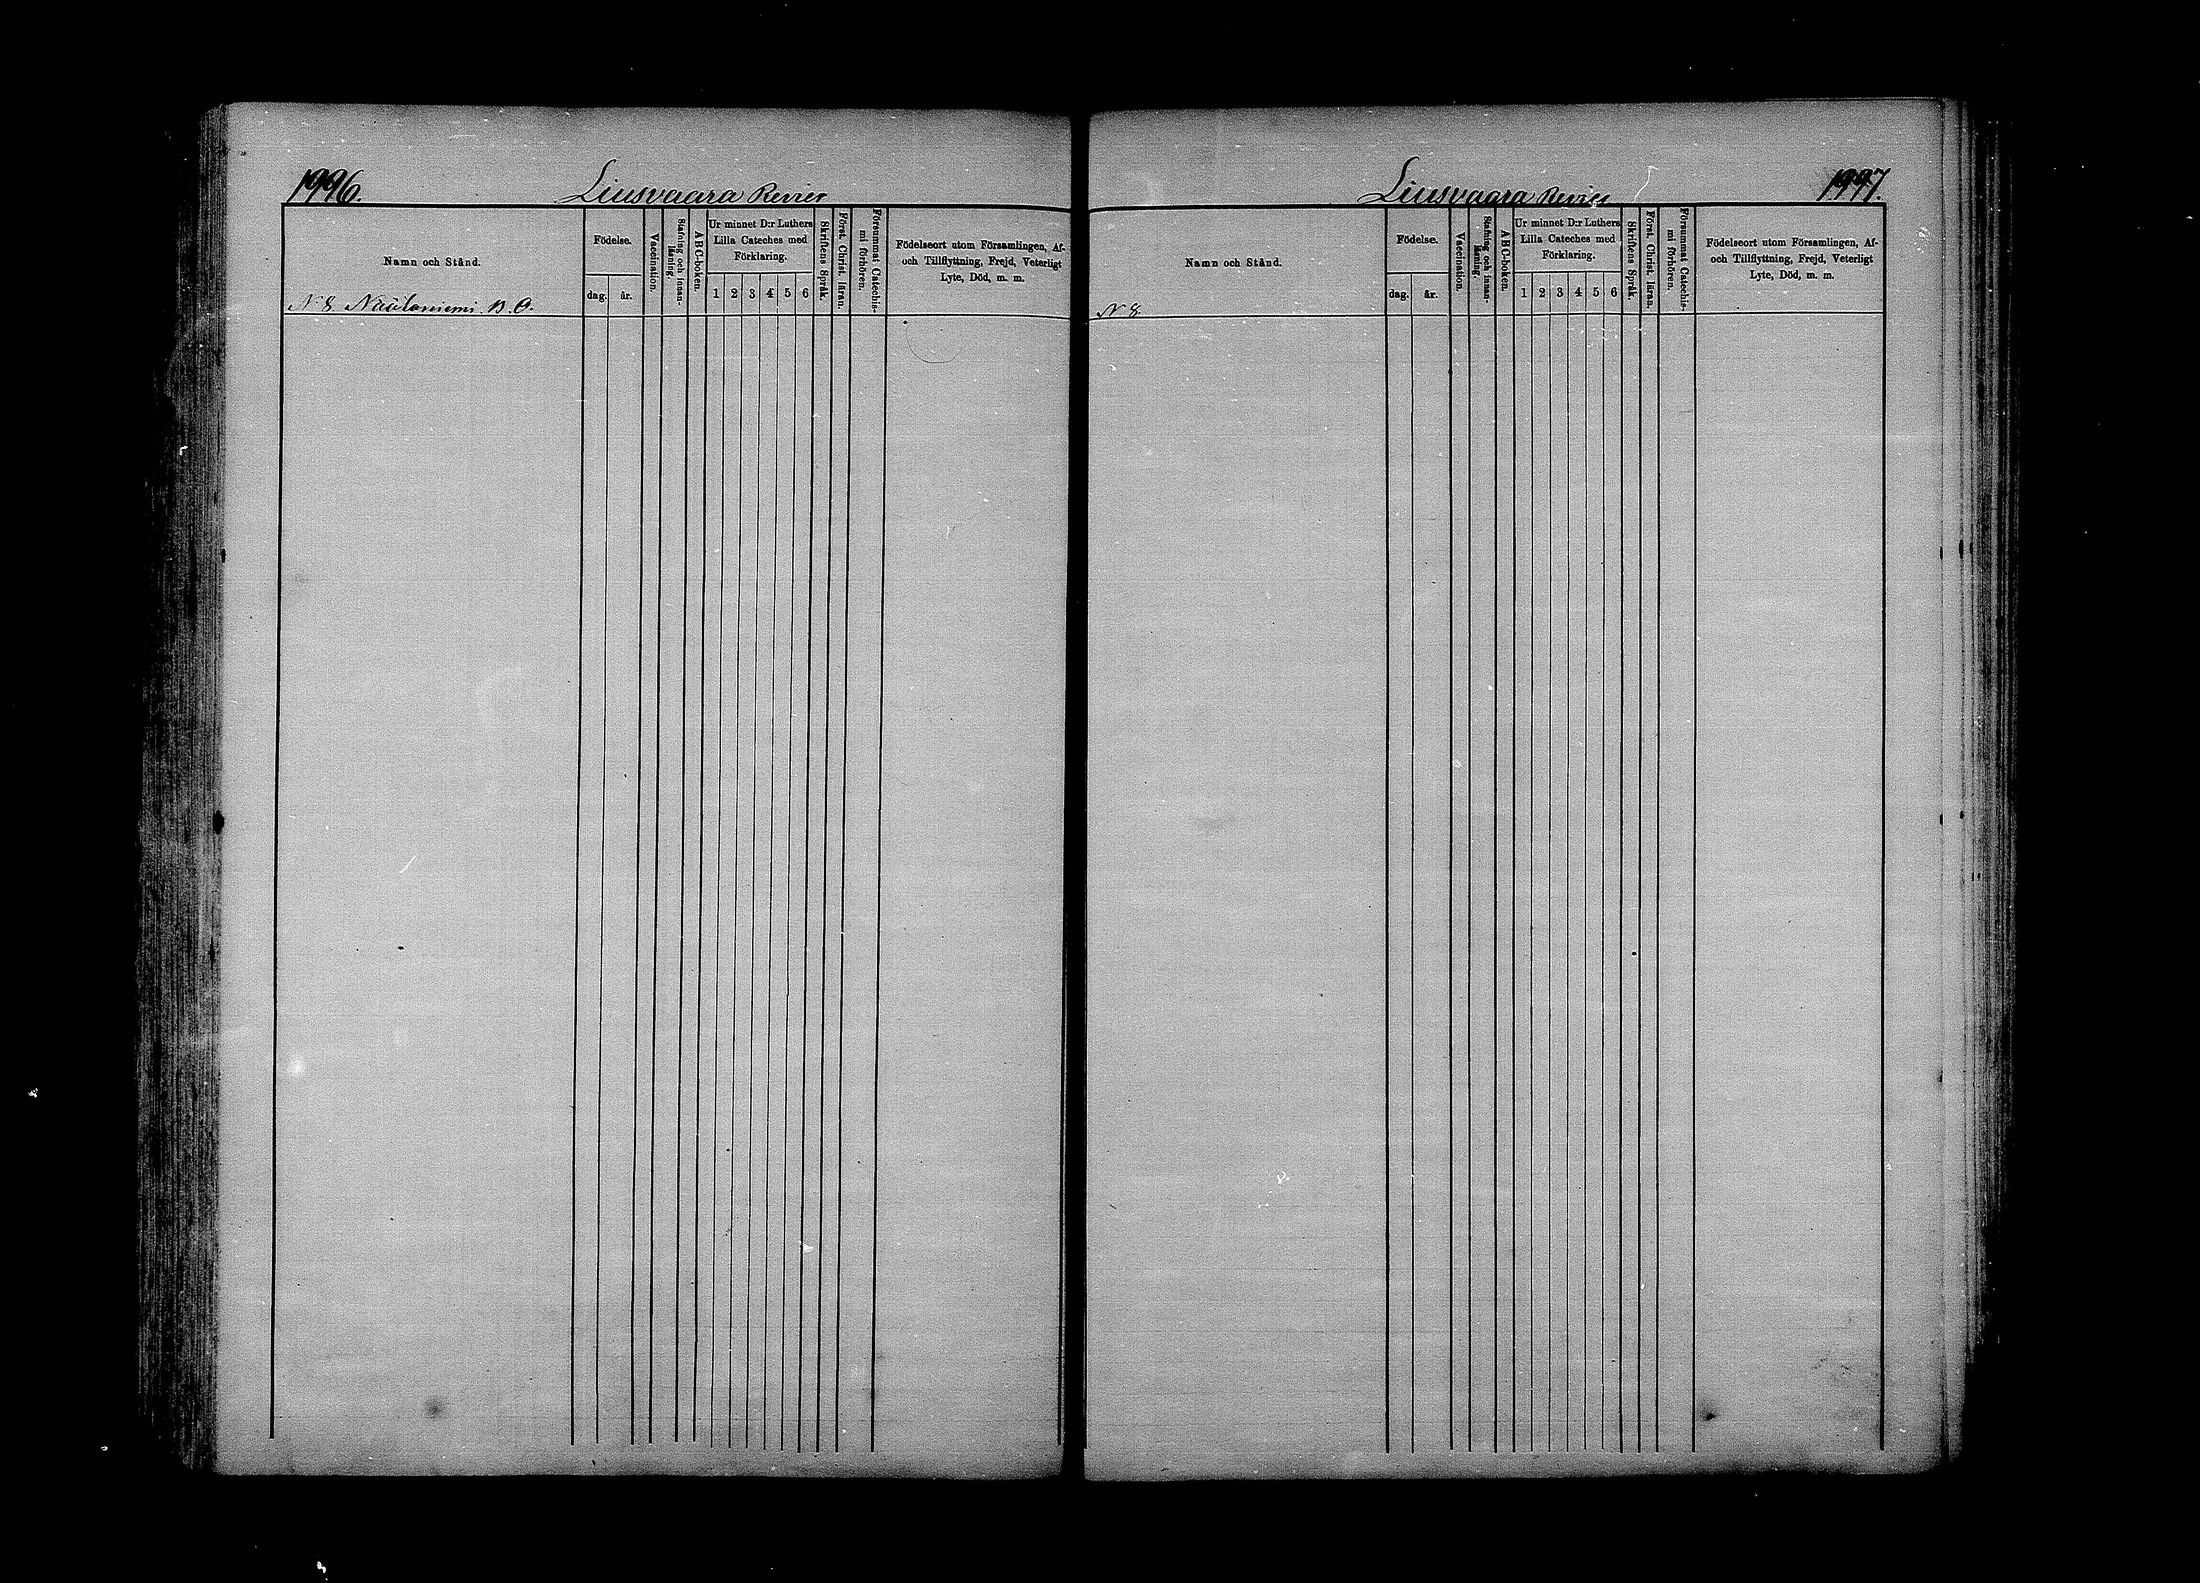 1996.
Liusvaara Revier
Namn och Stånd.
Födelse.
dag.
år.
Vaccination.
Stafning och innan-
läsning.
ABC-boken.
Ur minnet D:r Luthers
Lilla Cateches med
Förklaring.
1 2 3 4 5 6
Skriftens Språk.
Först. Christ. läran.
Försummat Catechis-
mi förhören.
Födelseort utom Församlingen, Af-
och Tillflyttning, Frejd, Veterligt
Lyte, Död, m. m.
N 8
1997.
Liusvaara Revier
Namn och Stånd.
Födelse.
dag.
år.
Vaccination.
Stafning och innan-
läsning.
ABC-boken.
Ur minnet D:r Luthers
Lilla Cateches med
Förklaring.
1 2 3 4 5 6
Skriftens Språk.
Först. Christ. läran.
Försummat Catechis-
mi förhören.
Födelseort utom Församlingen, Af-
och Tillflyttning, Frejd, Veterligt
Lyte, Död, m. m.
N 8